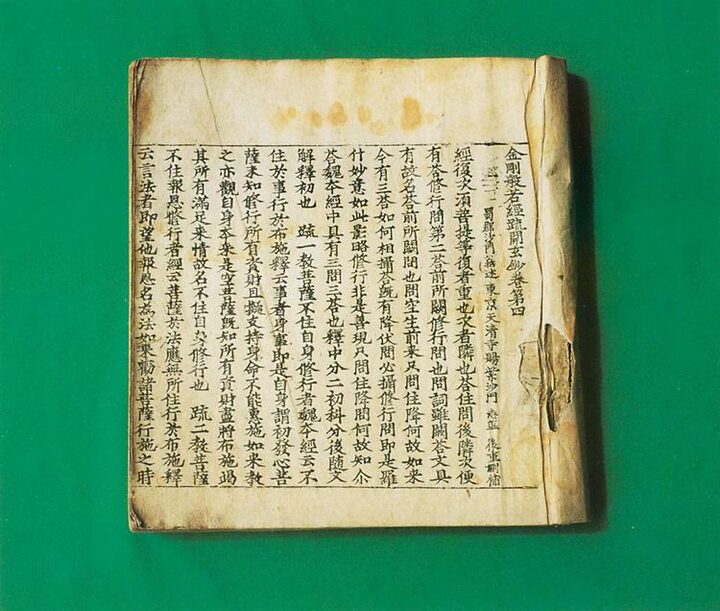 金剛般若經䟽開玄鈔卷第四
蜀郡沙門 述 東京天清寺賜紫沙門 後重刪補
經復次湏菩提等復者重也次者隣也荅住問後隣次便
有荅修行問第二荅前所闕修行問也問詞雖闕荅文具
有故名荅前所闕問也問空生前来只問住降何故如来
今有三荅如何相攝荅旣有降伏問必攝修行問即是羅
什妙意如此影略修行非是善現只問住降問何故知介
荅魏夲經中具有三問三荅也釋中分二初科分後随文
解釋初也 䟽一教菩薩不住自身修行者魏夲經云不
住於事行於布施釋云事者身事即是自身謂初發心菩
薩未知修行所有資財且擬支持身命不能惠施如来教
之亦觀自身夲来是空菩薩旣知所有資財盡將布施竭
其所有滿足来情故名不住自身修行也 䟽二教菩薩
不住報恩修行者經云菩薩於法應無所住行於布施釋
云言法者即望他報恩名為法如来勸諸菩薩行施之時